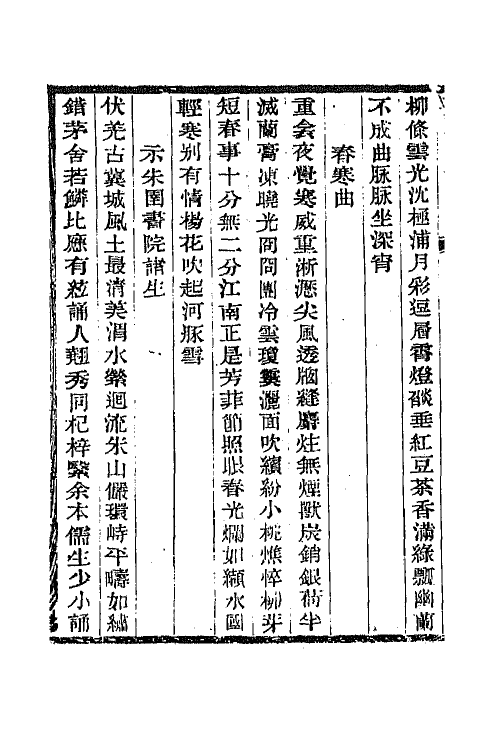 柳條雲光沈極浦月彩逗層霄燈燄垂紅豆茶香滿綠瓢幽蘭
不成曲脉脉坐深宵
春寒曲
重衾夜覺寒威重淅瀝尖風透牕縫麝炷無煙獸炭銷銀荷半
滅蘭膏凍曉光冏冏團冷雲瓊霙灑面吹繽紛小桃憔悴柳芽
短春事十分無二分江南正是芳菲節照眼春光爛如纈水國
輕寒别有情楊花吹起河豚雪
示朱圉書院諸生
伏羌古冀城風土最清美渭水縈迴流朱山儼環峙平疇如繡
錯茅舍若鱗比應有絃誦人翹秀同杞梓繄余本儒生少小誦